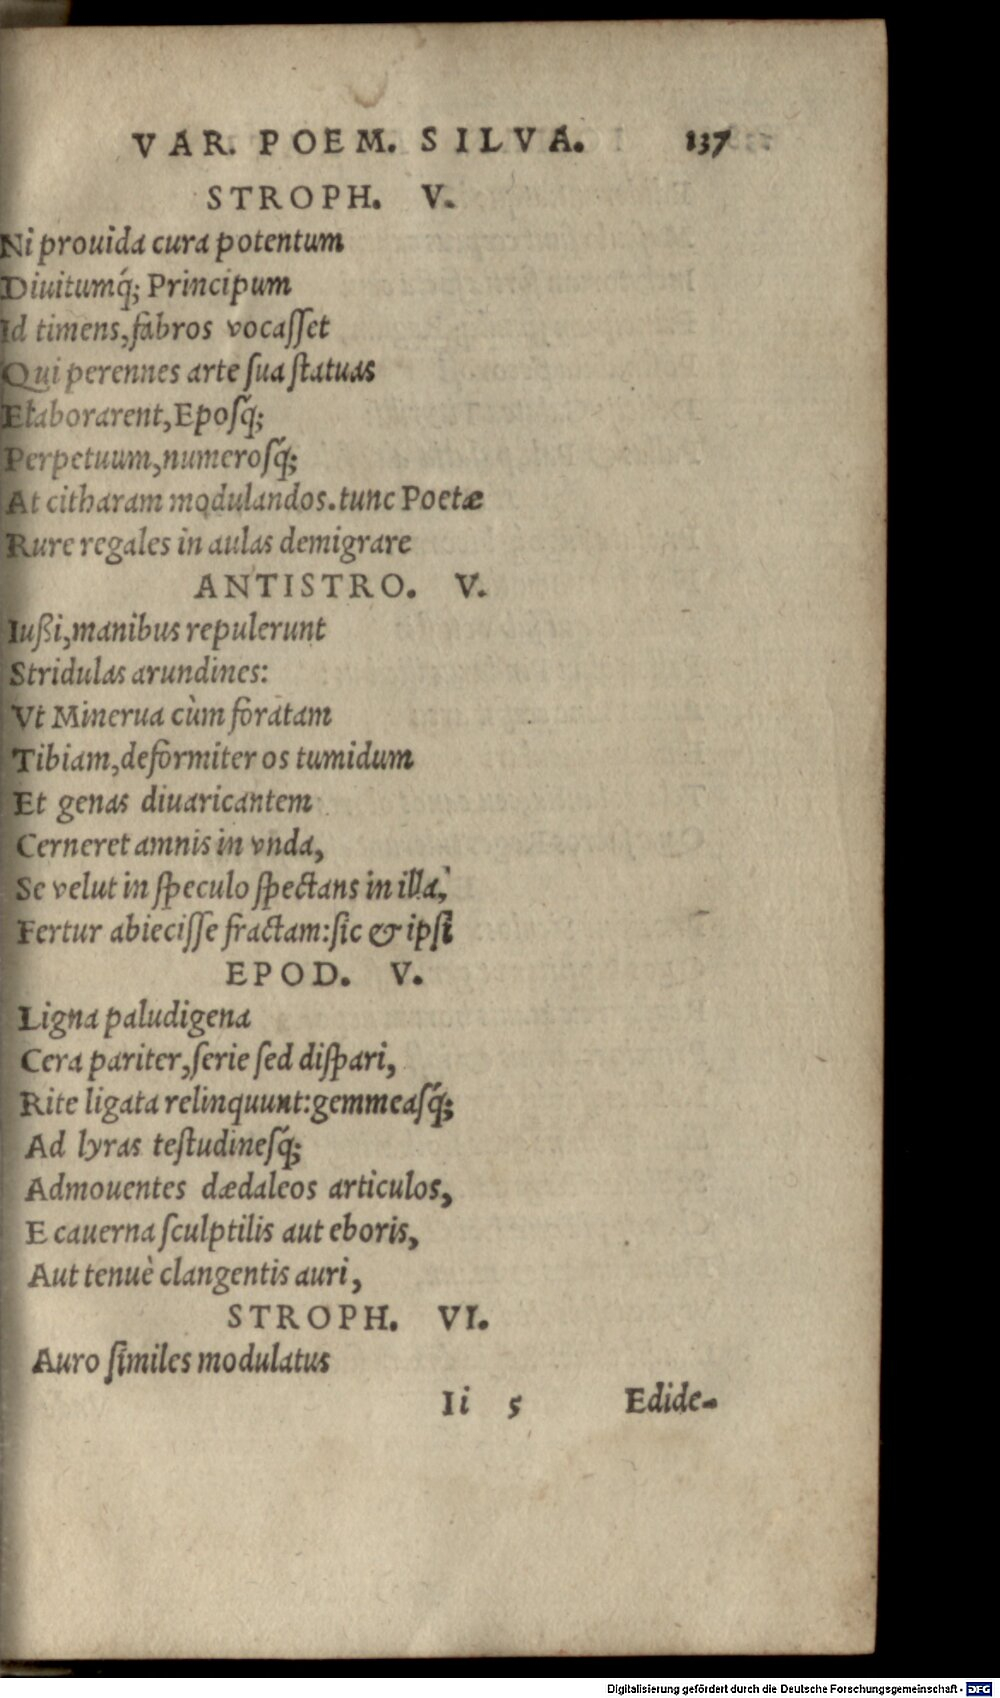 VAR. POEM. SILVA. 137
STROPH. V.
Ni prouida cura potentum
Diuitumq́; Principum
Id timens, fabros vocaſſet
Qui perennes arte ſua ſtatuas
Elaborarent, Epoſq́;
Perpetuum, numeroſq́;
At citharam modulandos. tunc Poetæ
Rure regales in aulas demigrare
ANTISTRO. V.
Iußi, manibus repulerunt
Stridulas arundines:
Vt Minerua cùm foratam
Tibiam, deformiter os tumidum
Et genas diuaricantem
Cerneret amnis in vnda,
Se velut in ſpeculo ſpectans in illa,
Fertur abieciſſe fractam: ſic & ipſi
EPOD. V.
Ligna paludigena
Cera pariter, ſerie ſed diſpari,
Rite ligata relinquunt: gemmeaſq́;
Ad lyras teſtudineſq́;
Admouentes dædaleos articulos,
E cauerna ſculptilis aut eboris,
Aut tenuè clangentis auri,
STROPH. VI.
Auro ſimiles modulatus
Ii 5 Edide-
Digitalisierung gefördert durch die Deutsche Forschungsgemeinschaft - DFG